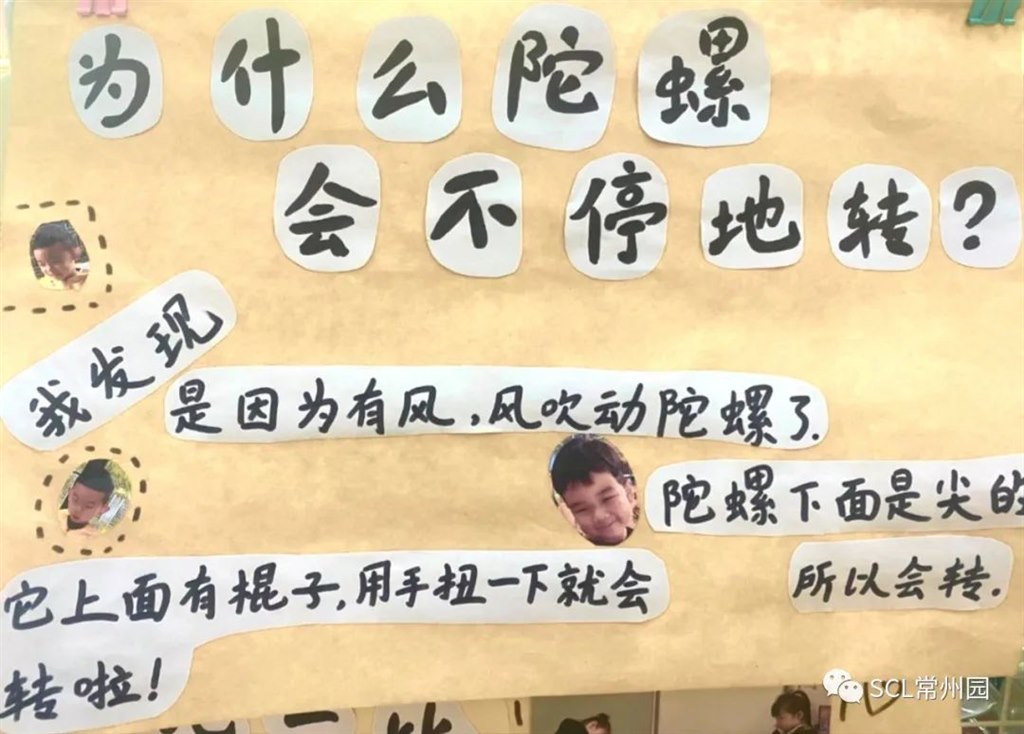 为什么陀螺
会不停地转?
我发现
是因为有风,风吹动陀螺了.
陀螺下面是尖的
所以会转.
它上面有棍子,用手扭一下就会
转啦!
SCL常州园